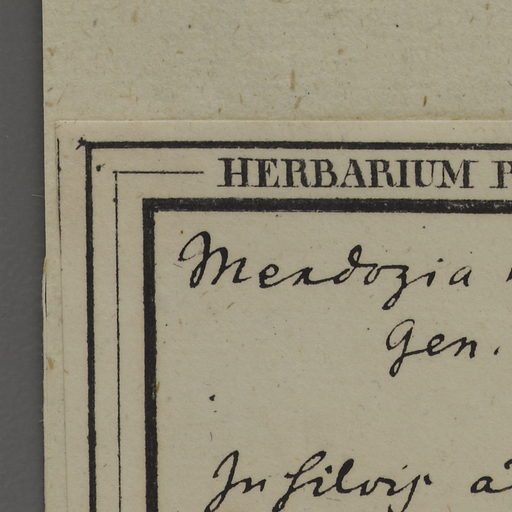 HERBARIUM P
Mendozia
Gen.
In silvis a